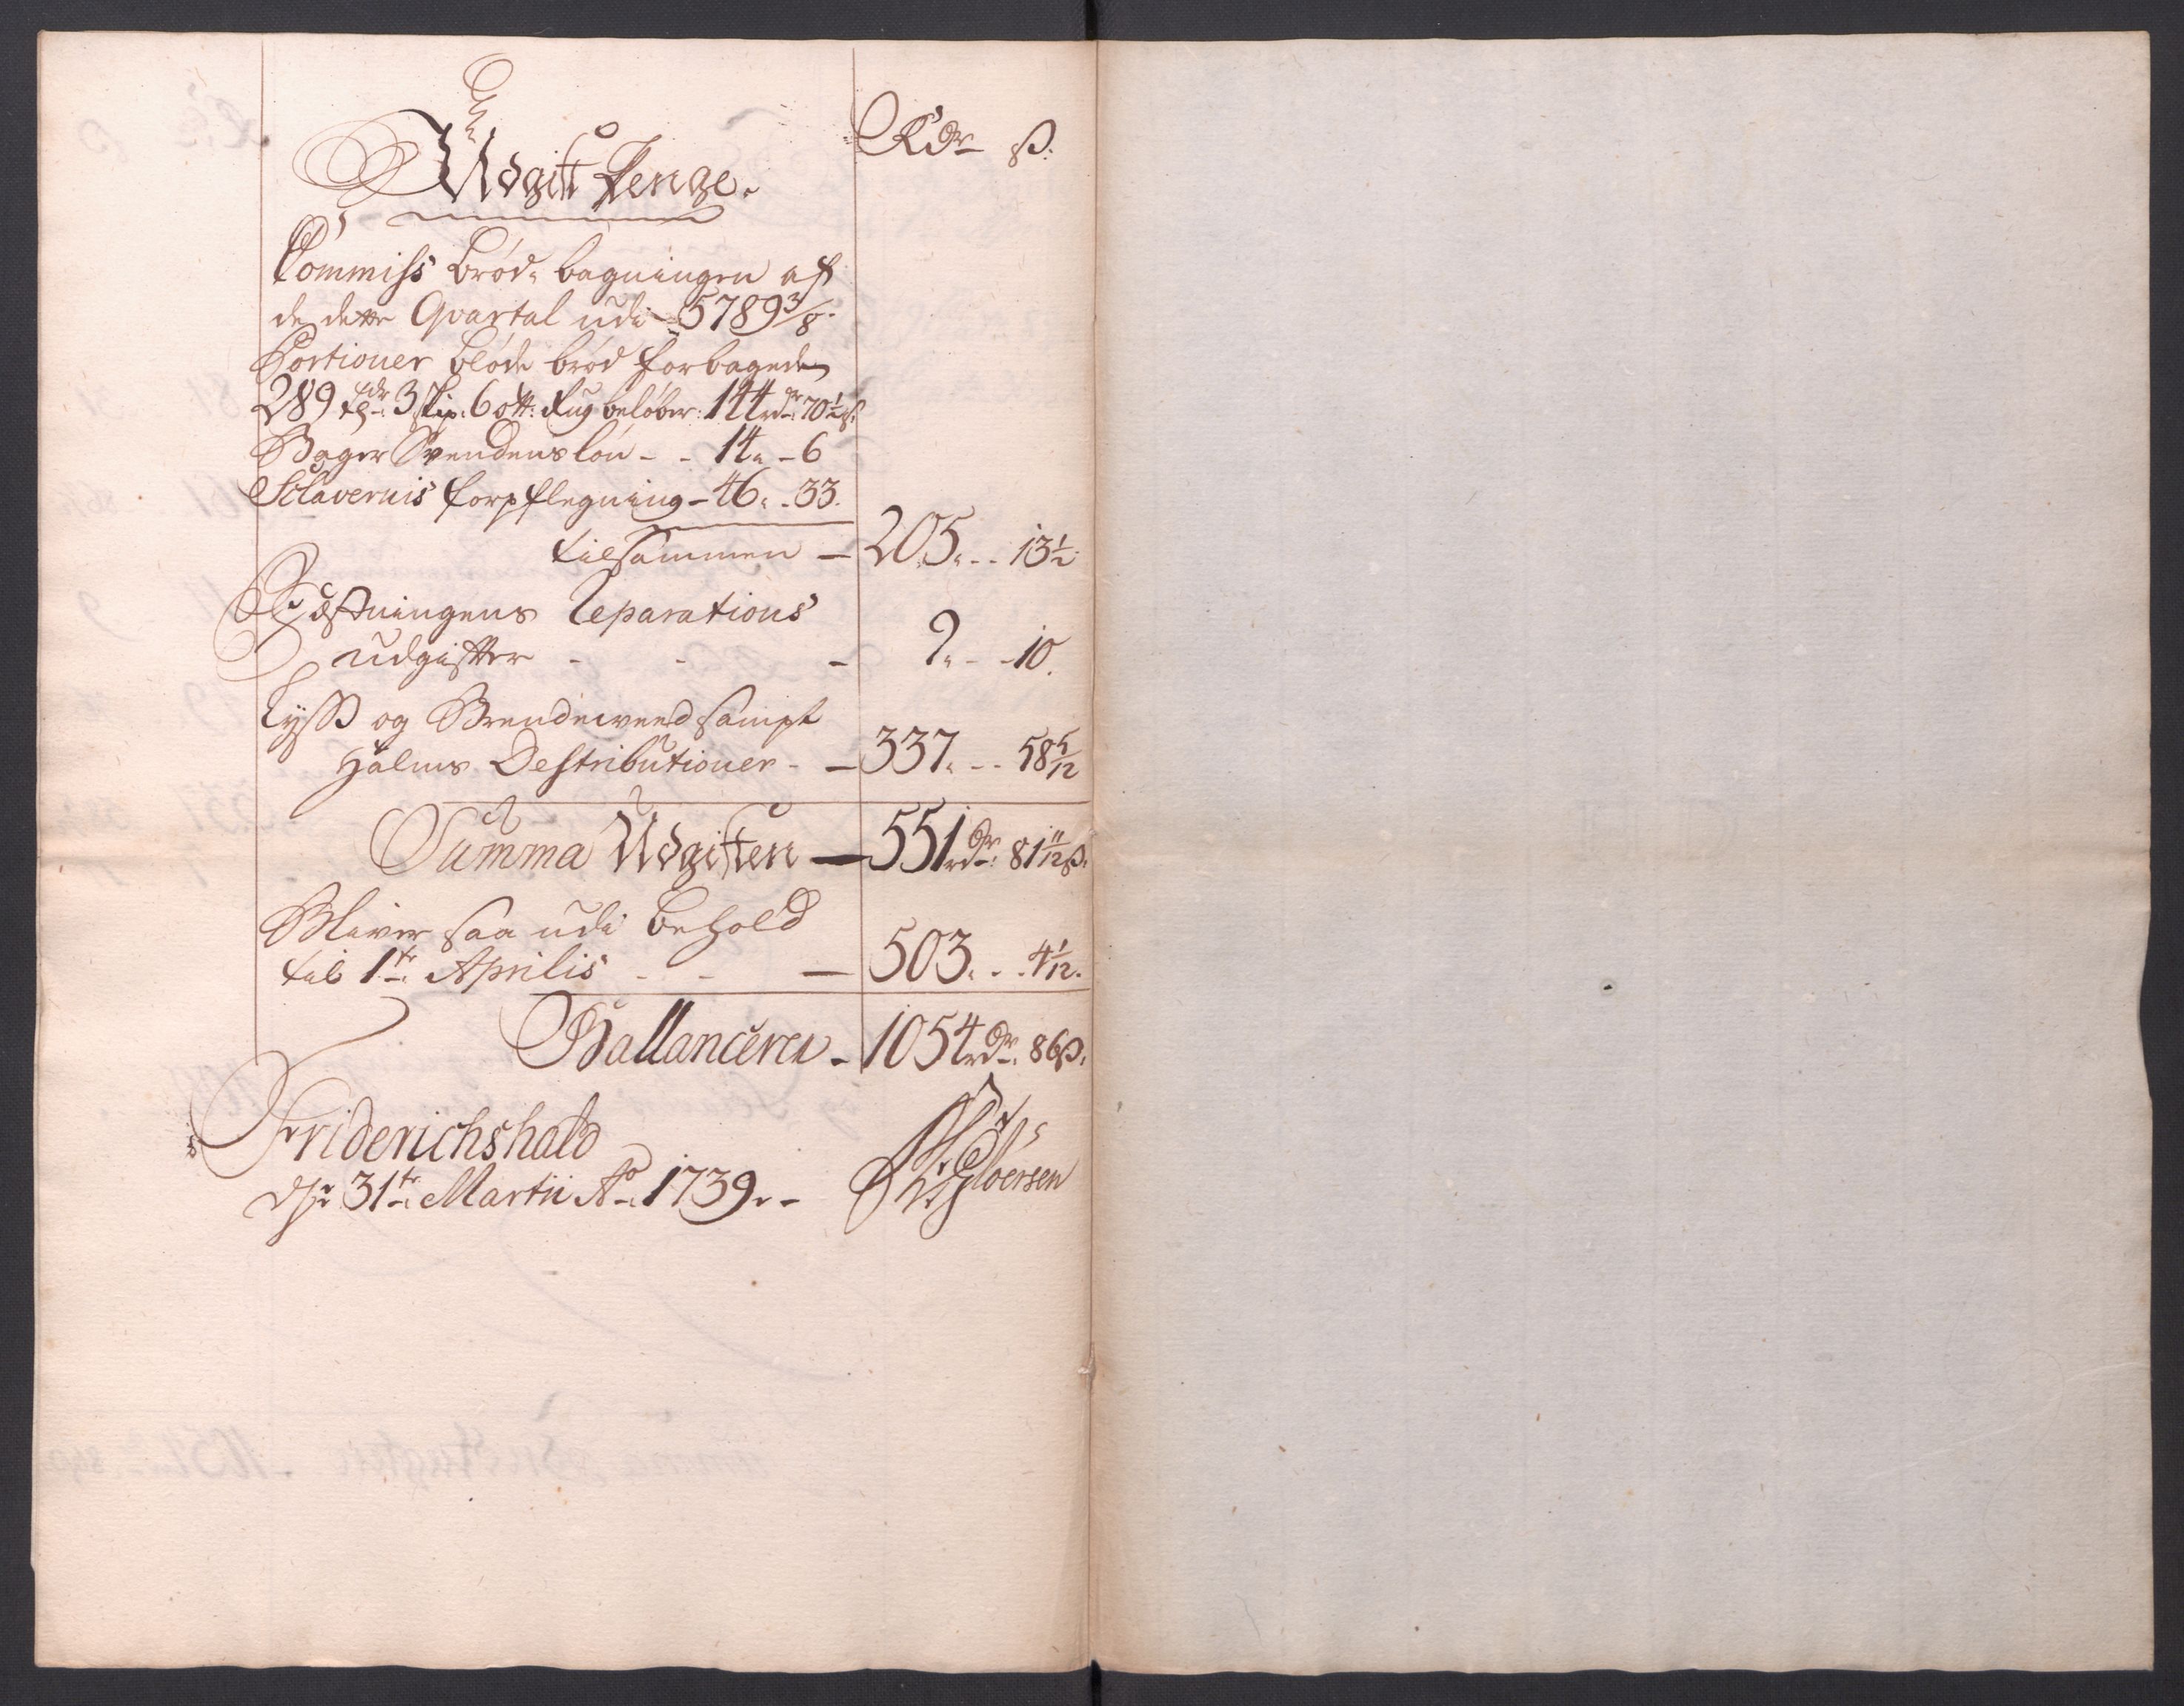 Udgift Penge.
Rdr ß.
Commiss brød, bagningen af
de dette Qvartal udi 5789 3/8
Portioner bløde brød forbagede
289 tdr 3 skip. 6 ott. Rug beløber: 144 rdr 70 1/2 ß.
Bager Svendens løn - - 14 „ - 6
Sclavernis forpflegning - 46 „ - 33.
tilsammen — 205 „ - - 13 1/2
Fæstningens Reparations
udgifter - - - 9 „ - - 10.
Lyss og Brendeveed sampt
Halms Destributioner - - 337 „ - - 58 5/12
Summa Udgiften — 551 rdr. 81 11/12 ß.
Bliver saa udi behold
til 1te Aprilis - - — 503 „ - - 4 1/12.
Ballancerer - 1054 rdr. 86 ß.
Friderichshald
dh 31te Martii Ao 1739. -